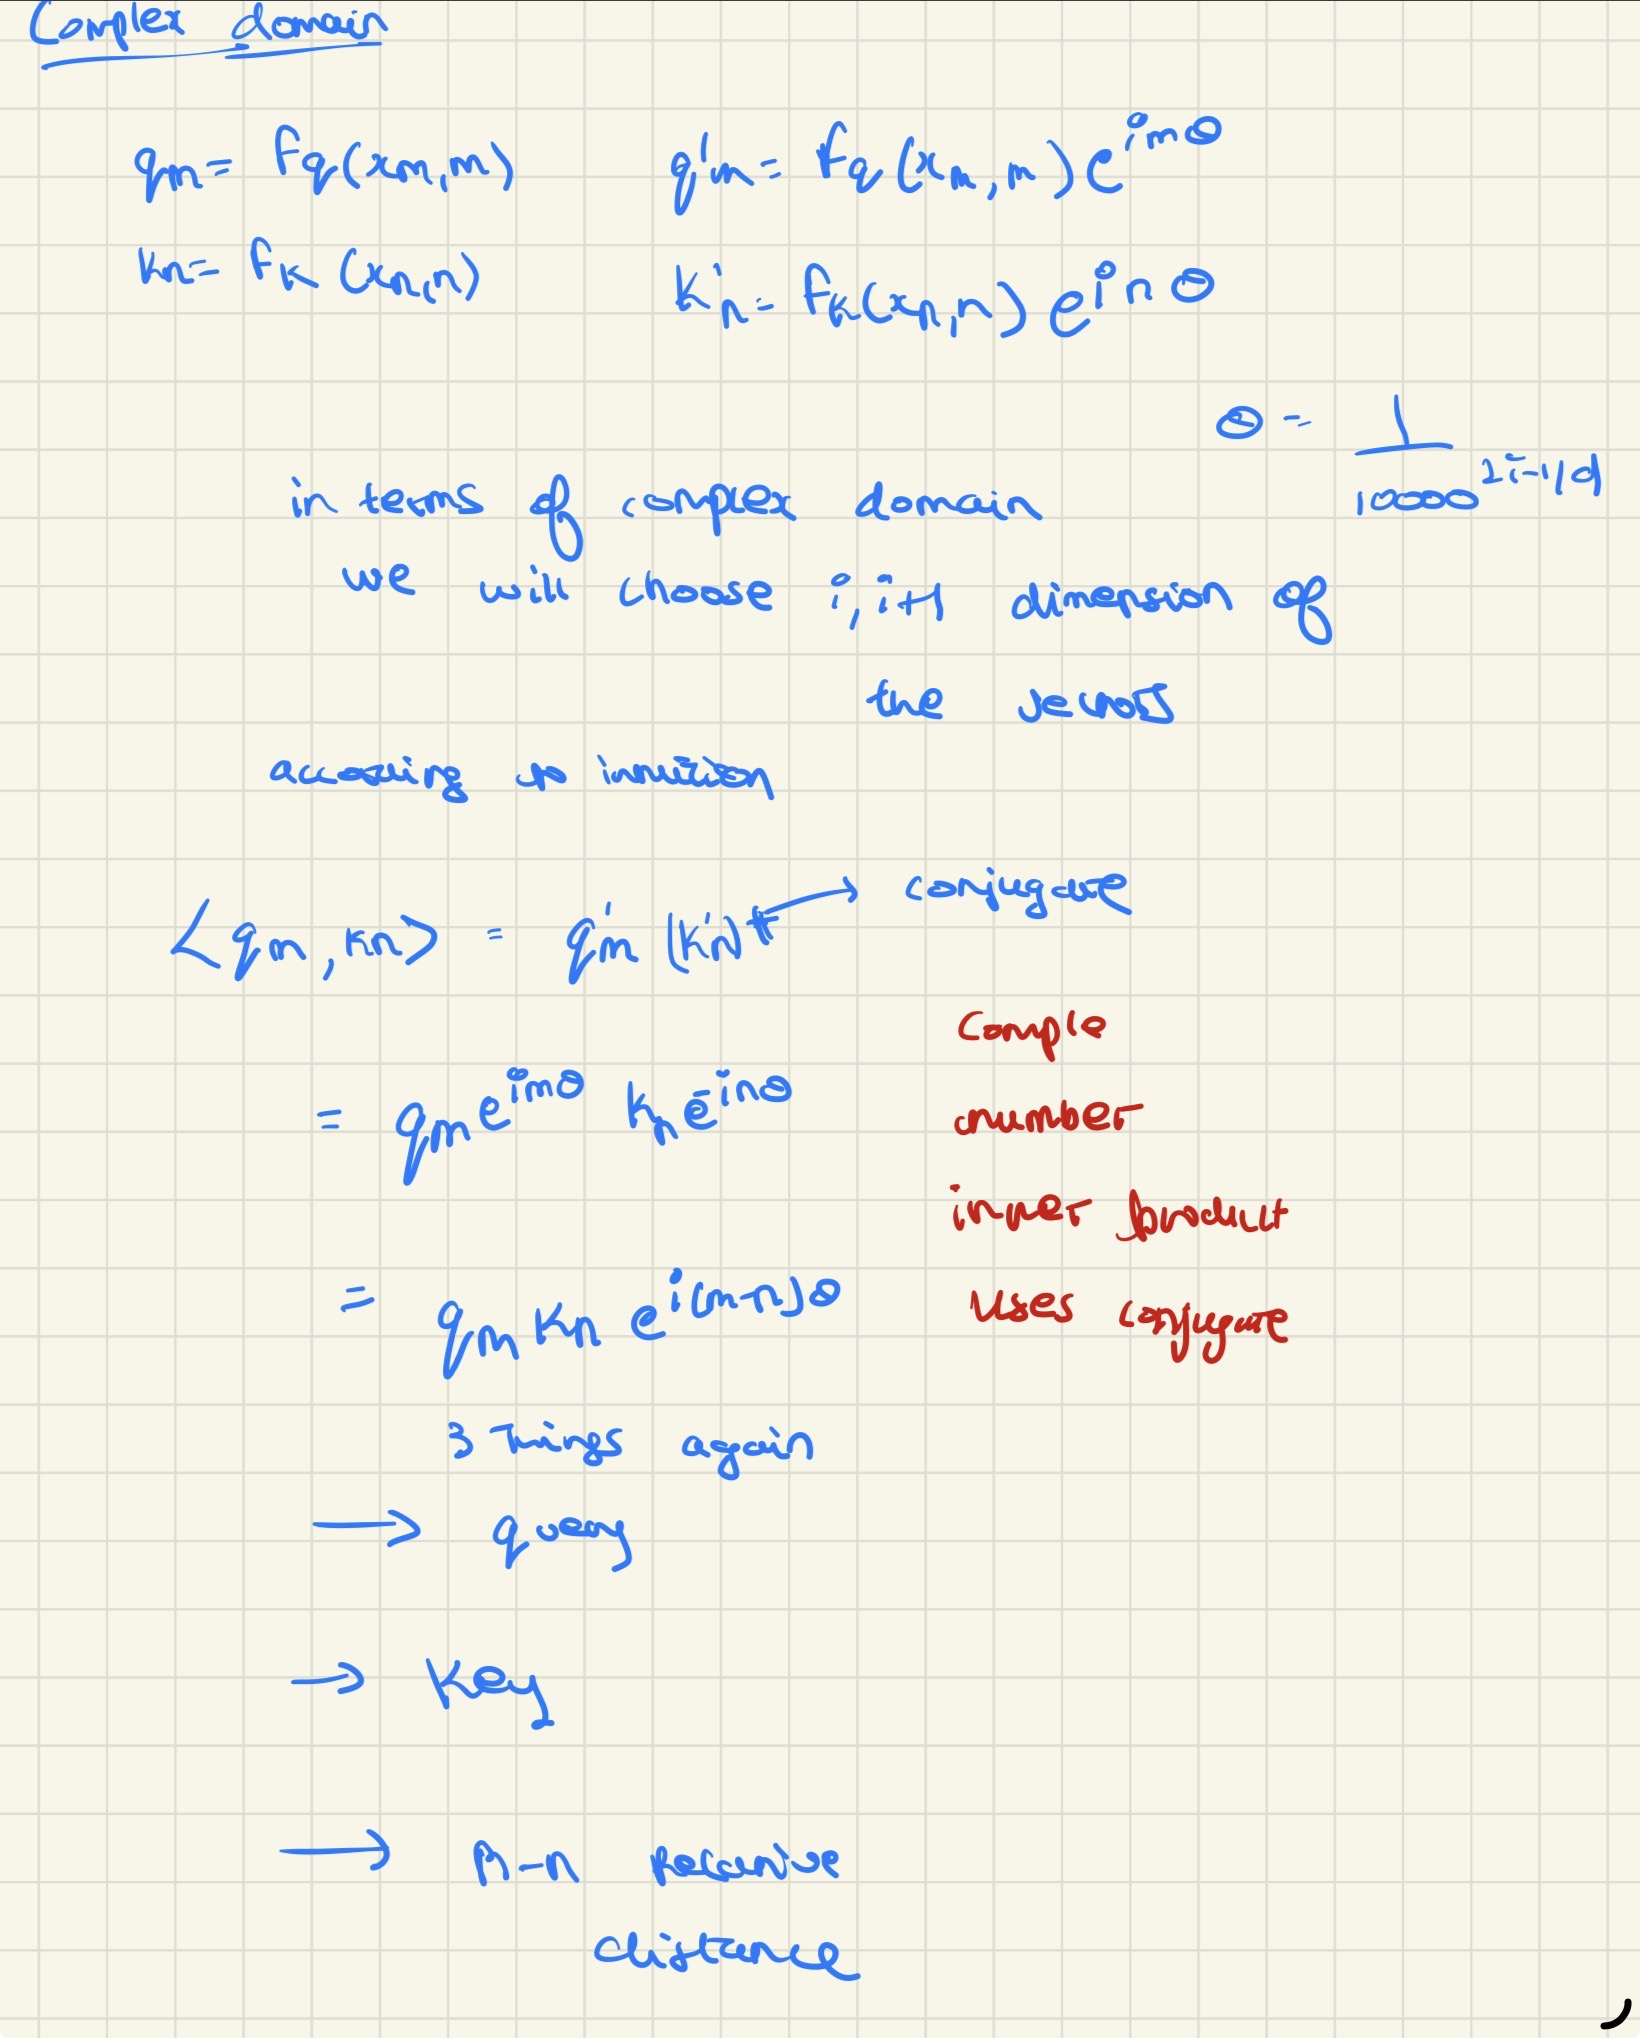 Complex domain
qm = fq(xm,m) q'm = fq(xm,m)e^imθ
kn = fk(xn,n) k'n = fk(xn,n) e^inθ
θ = 1/10000^2i-1/d
in terms of complex domain
we will choose i, i+1 dimension of
the vectors
according to intuition
<qm, kn> = q'm (k'n)* → conjugate
Comple
number
inner product
uses conjugate
= qm e^imθ kn e^-inθ
= qm kn e^i(m-n)θ
3 things again
→ query
→ Key
→ m-n relative
distance